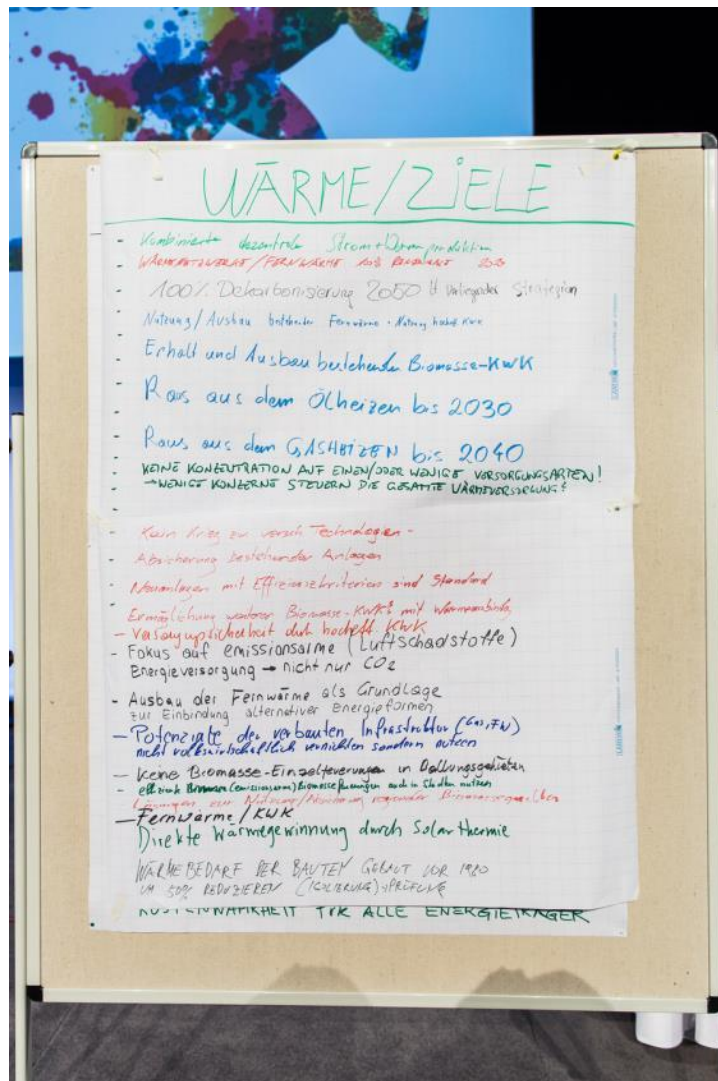 WÄRME/ZIELE
- Kombinierte dezentrale Strom+Wärmeproduktion
- WÄRMENETZWERKE/FERNWÄRME
- 100% Dekarbonisierung 2050 Strategien
- Nutzung/Ausbau bestehender Fernwärme + Nutzung hocheff. KWK
- Erhalt und Ausbau bestehender Biomasse-KWK
- Raus aus dem Ölheizen bis 2030
- Raus aus dem GASHEIZEN bis 2040
- KEINE KONZENTRATION AUF EINEN/ODER WENIGE VERSORGUNGSARTEN!
→WENIGE KONZERNE STEUERN DIE GESAMTE WÄRMEVERSORGUNG?
- Kein Krieg zw. versch Technologien -
- Absicherung bestehender Anlagen
- Neuanlagen mit Effizienzkriterien sind Standard
- Ermöglichung weiterer Biomasse-KWKs mit
- Versorgungssicherheit durch hocheff. KWK
- Fokus auf emissionsarme (Luftschadstoffe)
Energieversorgung → nicht nur CO2
- Ausbau der Fernwärme als Grundlage
zur Einbindung alternativer Energieformen
- Potenziale der verbauten Infrastruktur (Gas, FW)
nicht volkswirtschaftlich vernichten sondern nutzen
- Keine Biomasse-Einzelfeuerungen in Ballungsgebieten
- effiziente (emissionsarme) Biomassefeuerungen auch in Städten nutzen
Lösungen zur Nutzung
- Fernwärme/KWK
Direkte Wärmegewinnung durch Solarthermie
WÄRMEBEDARF DER BAUTEN GEBAUT VOR 1980
UM 50% REDUZIEREN (ISOLIERUNG)
KOSTENWAHRHEIT FÜR ALLE ENERGIETRÄGER